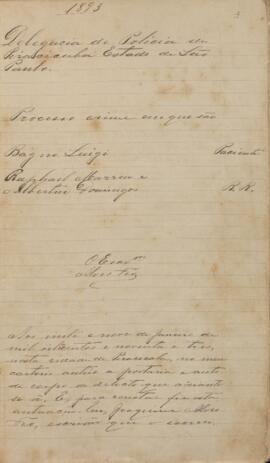 1893
Delegacia de Policia de
Piracicaba Estado de São
Paulo.
Processo crime em que são
Bagno Luigi Paciente
Raphael Marrese e
Albertin Domingos R.R.
O Escr.
Aos vinte e nove de janeiro de
mil oitocentos e noventa e tres,
nesta cidade de Piracicaba, no meu
cartorio autuo a portaria e auto
de corpo de delicto que adiante
se vê. E, para constar fiz esta
autuação. Eu, Joaquim Alves
escrivão que o escrevi.